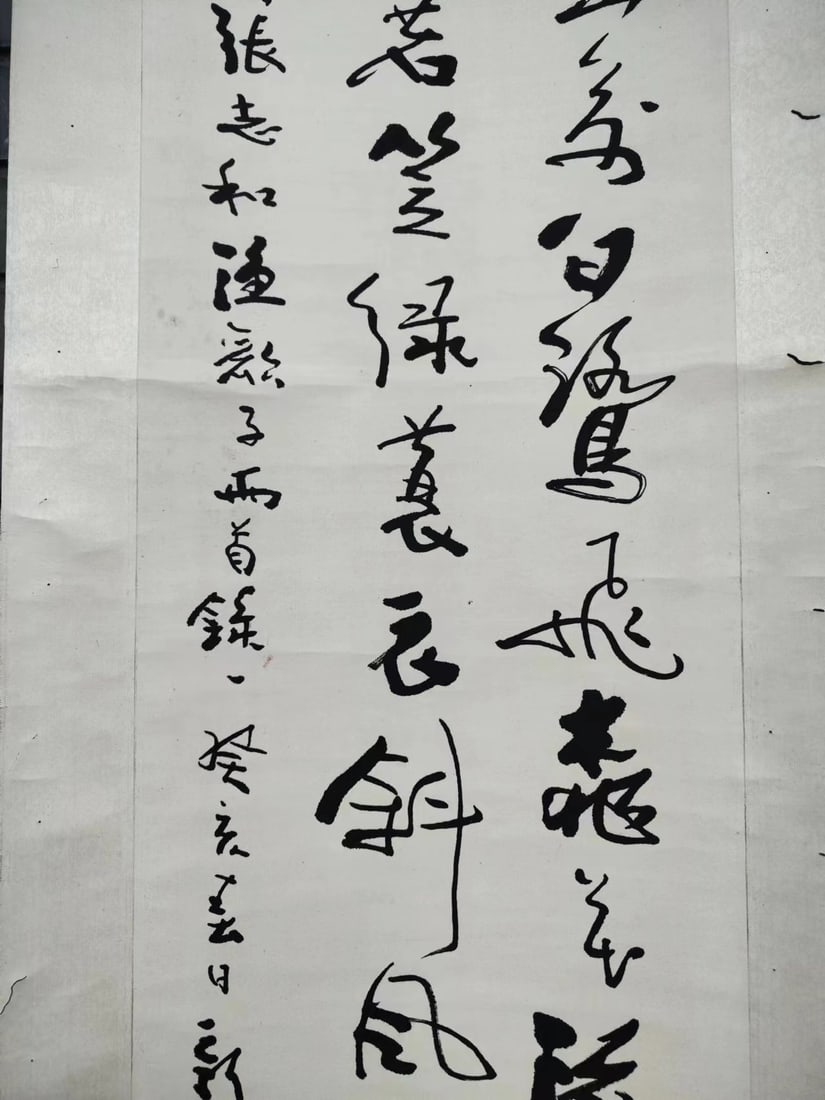 前白鷺飛桃花流
箬笠綠蓑衣斜風
張志和漁歌子兩首錄一 癸亥春日